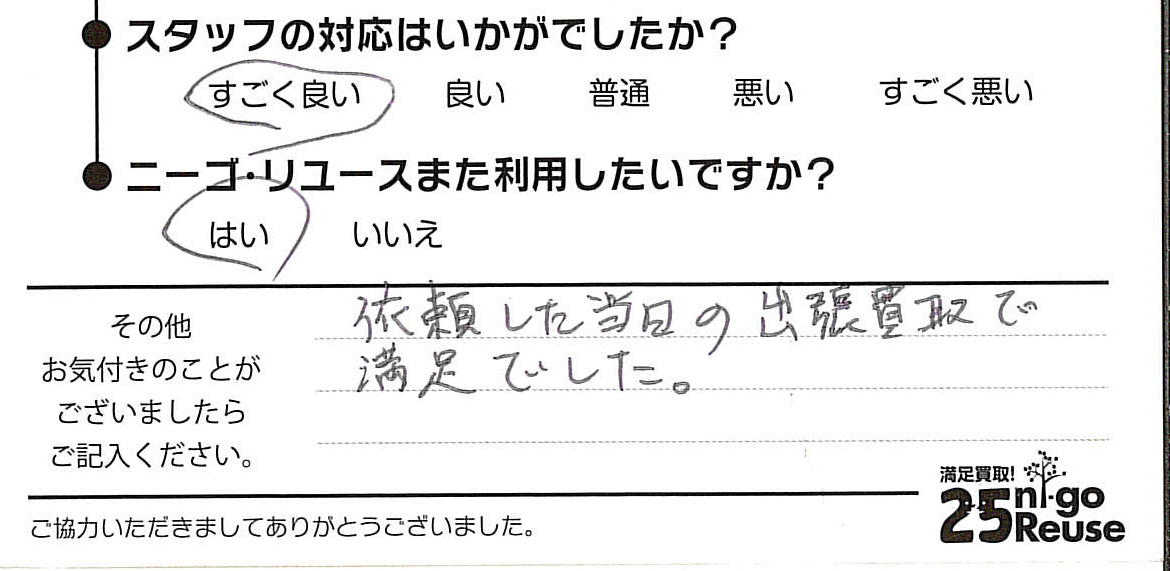 スタッフの対応はいかがでしたか?
すごく良い 良い 普通 悪い すごく悪い
ニーゴ・リユースまた利用したいですか?
はい いいえ
依頼した当日の出張買取で
満足でした。
その他
お気付きのことが
ございましたら
ご記入ください。
満足買取!
25 ni-go
Reuse
ご協力いただきましてありがとうございました。